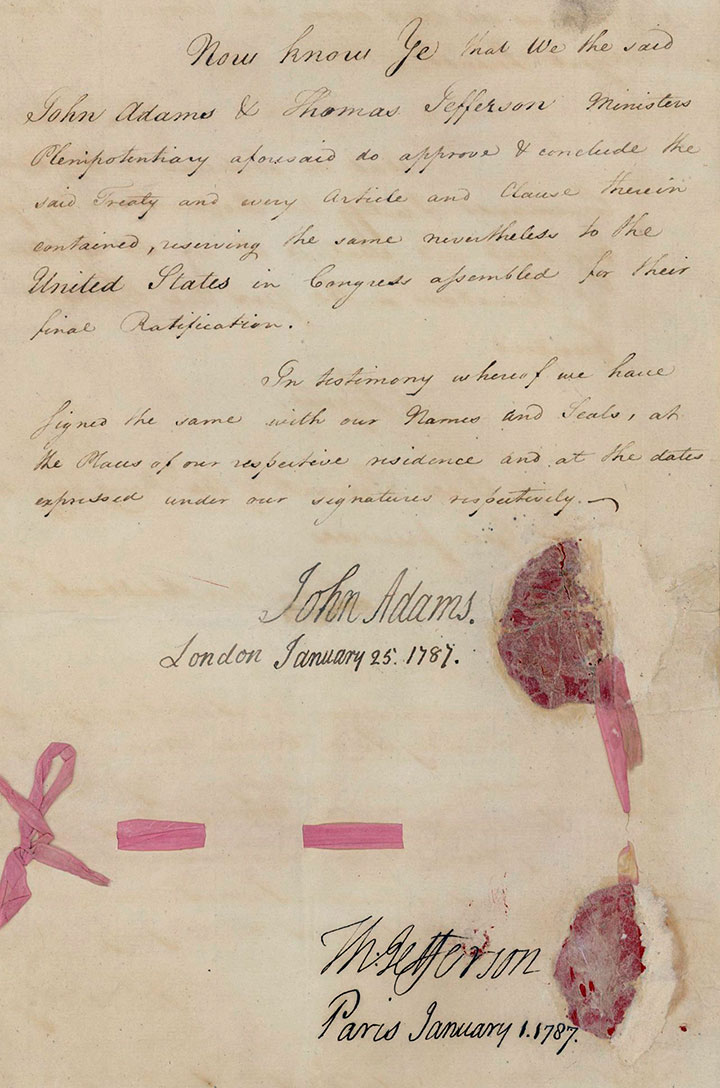 Now know Ye that We the said
John Adams & Thomas Jefferson Ministers
Plenipotentiary aforesaid do approve & conclude the
said Treaty and every Article and Clause therein
contained, reserving the same nevertheless to the
United States in Congress assembled for their
final Ratification.
In testimony whereof we have
signed the same with our Names and Seals, at
the Places of our respective residence and at the dates
expressed under our signatures respectively.
John Adams.
London January 25. 1787.
Th: Jefferson
Paris January 1. 1787.